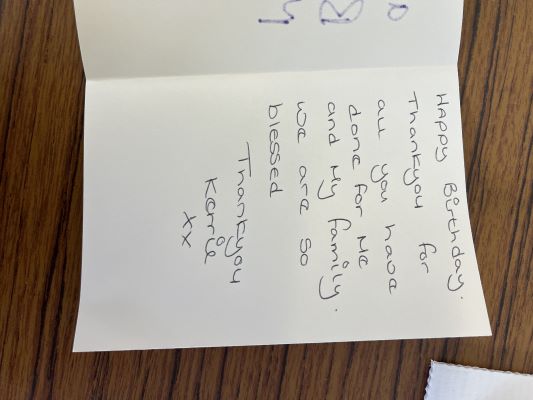 Happy Birthday.
Thankyou for
all you have
done for me
and my family.
we are so
blessed
Thankyou
Kerrie
xx